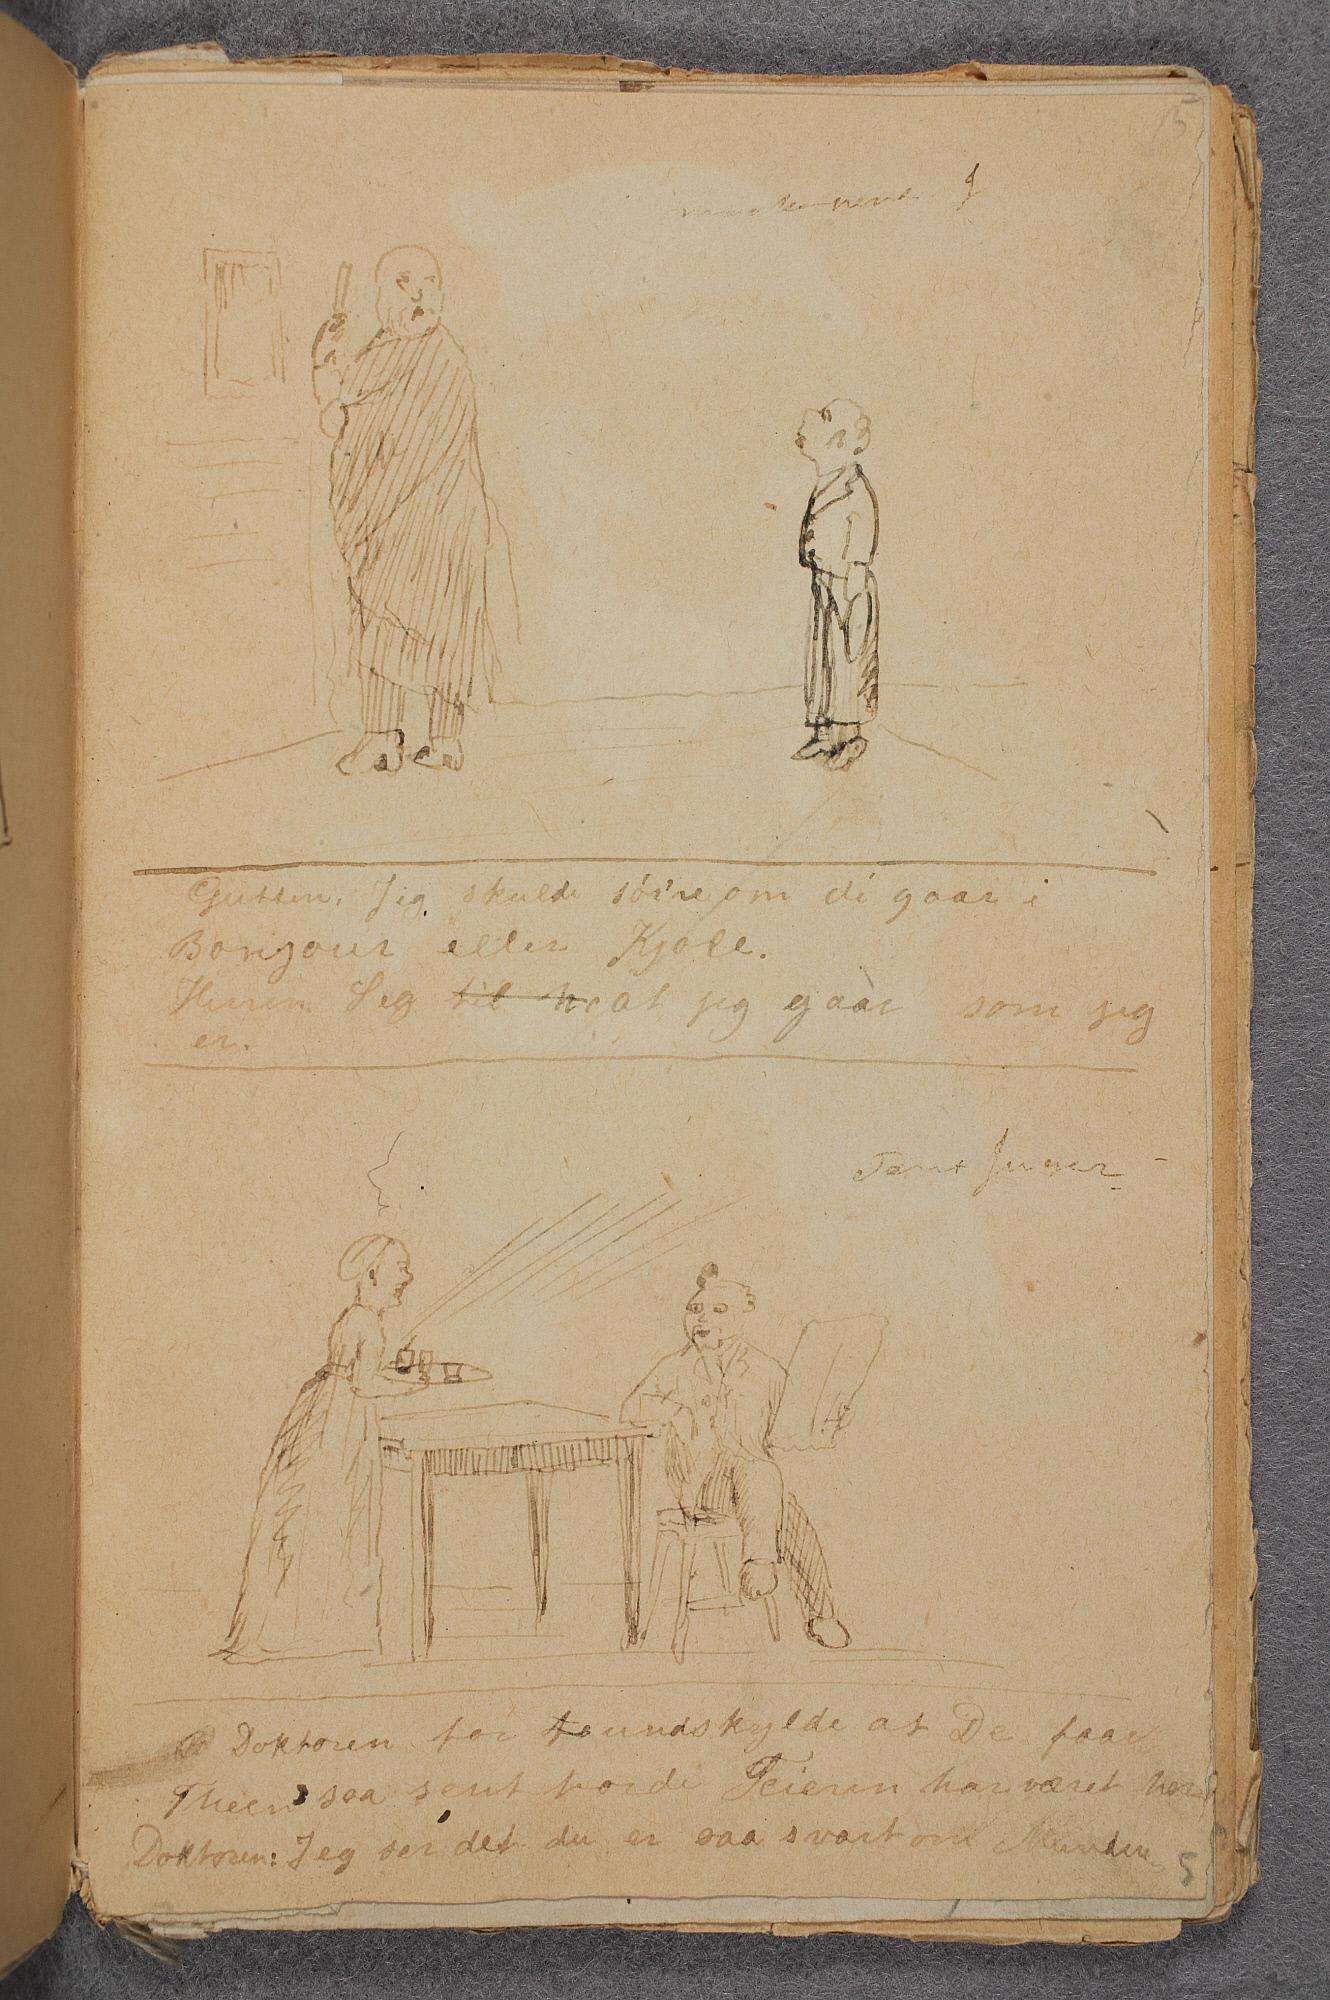 5
Gutten. Jeg skulde sóire om di gaar i
Bonjour eller Kjole.
Herren Seg til at jeg gaar som jeg
er.
Tant
Doktoren for undskylde at De faar
Theen saa sent fordi Feieren har været her
Doktoren: Jeg ser det du er saa svart om Munden
5